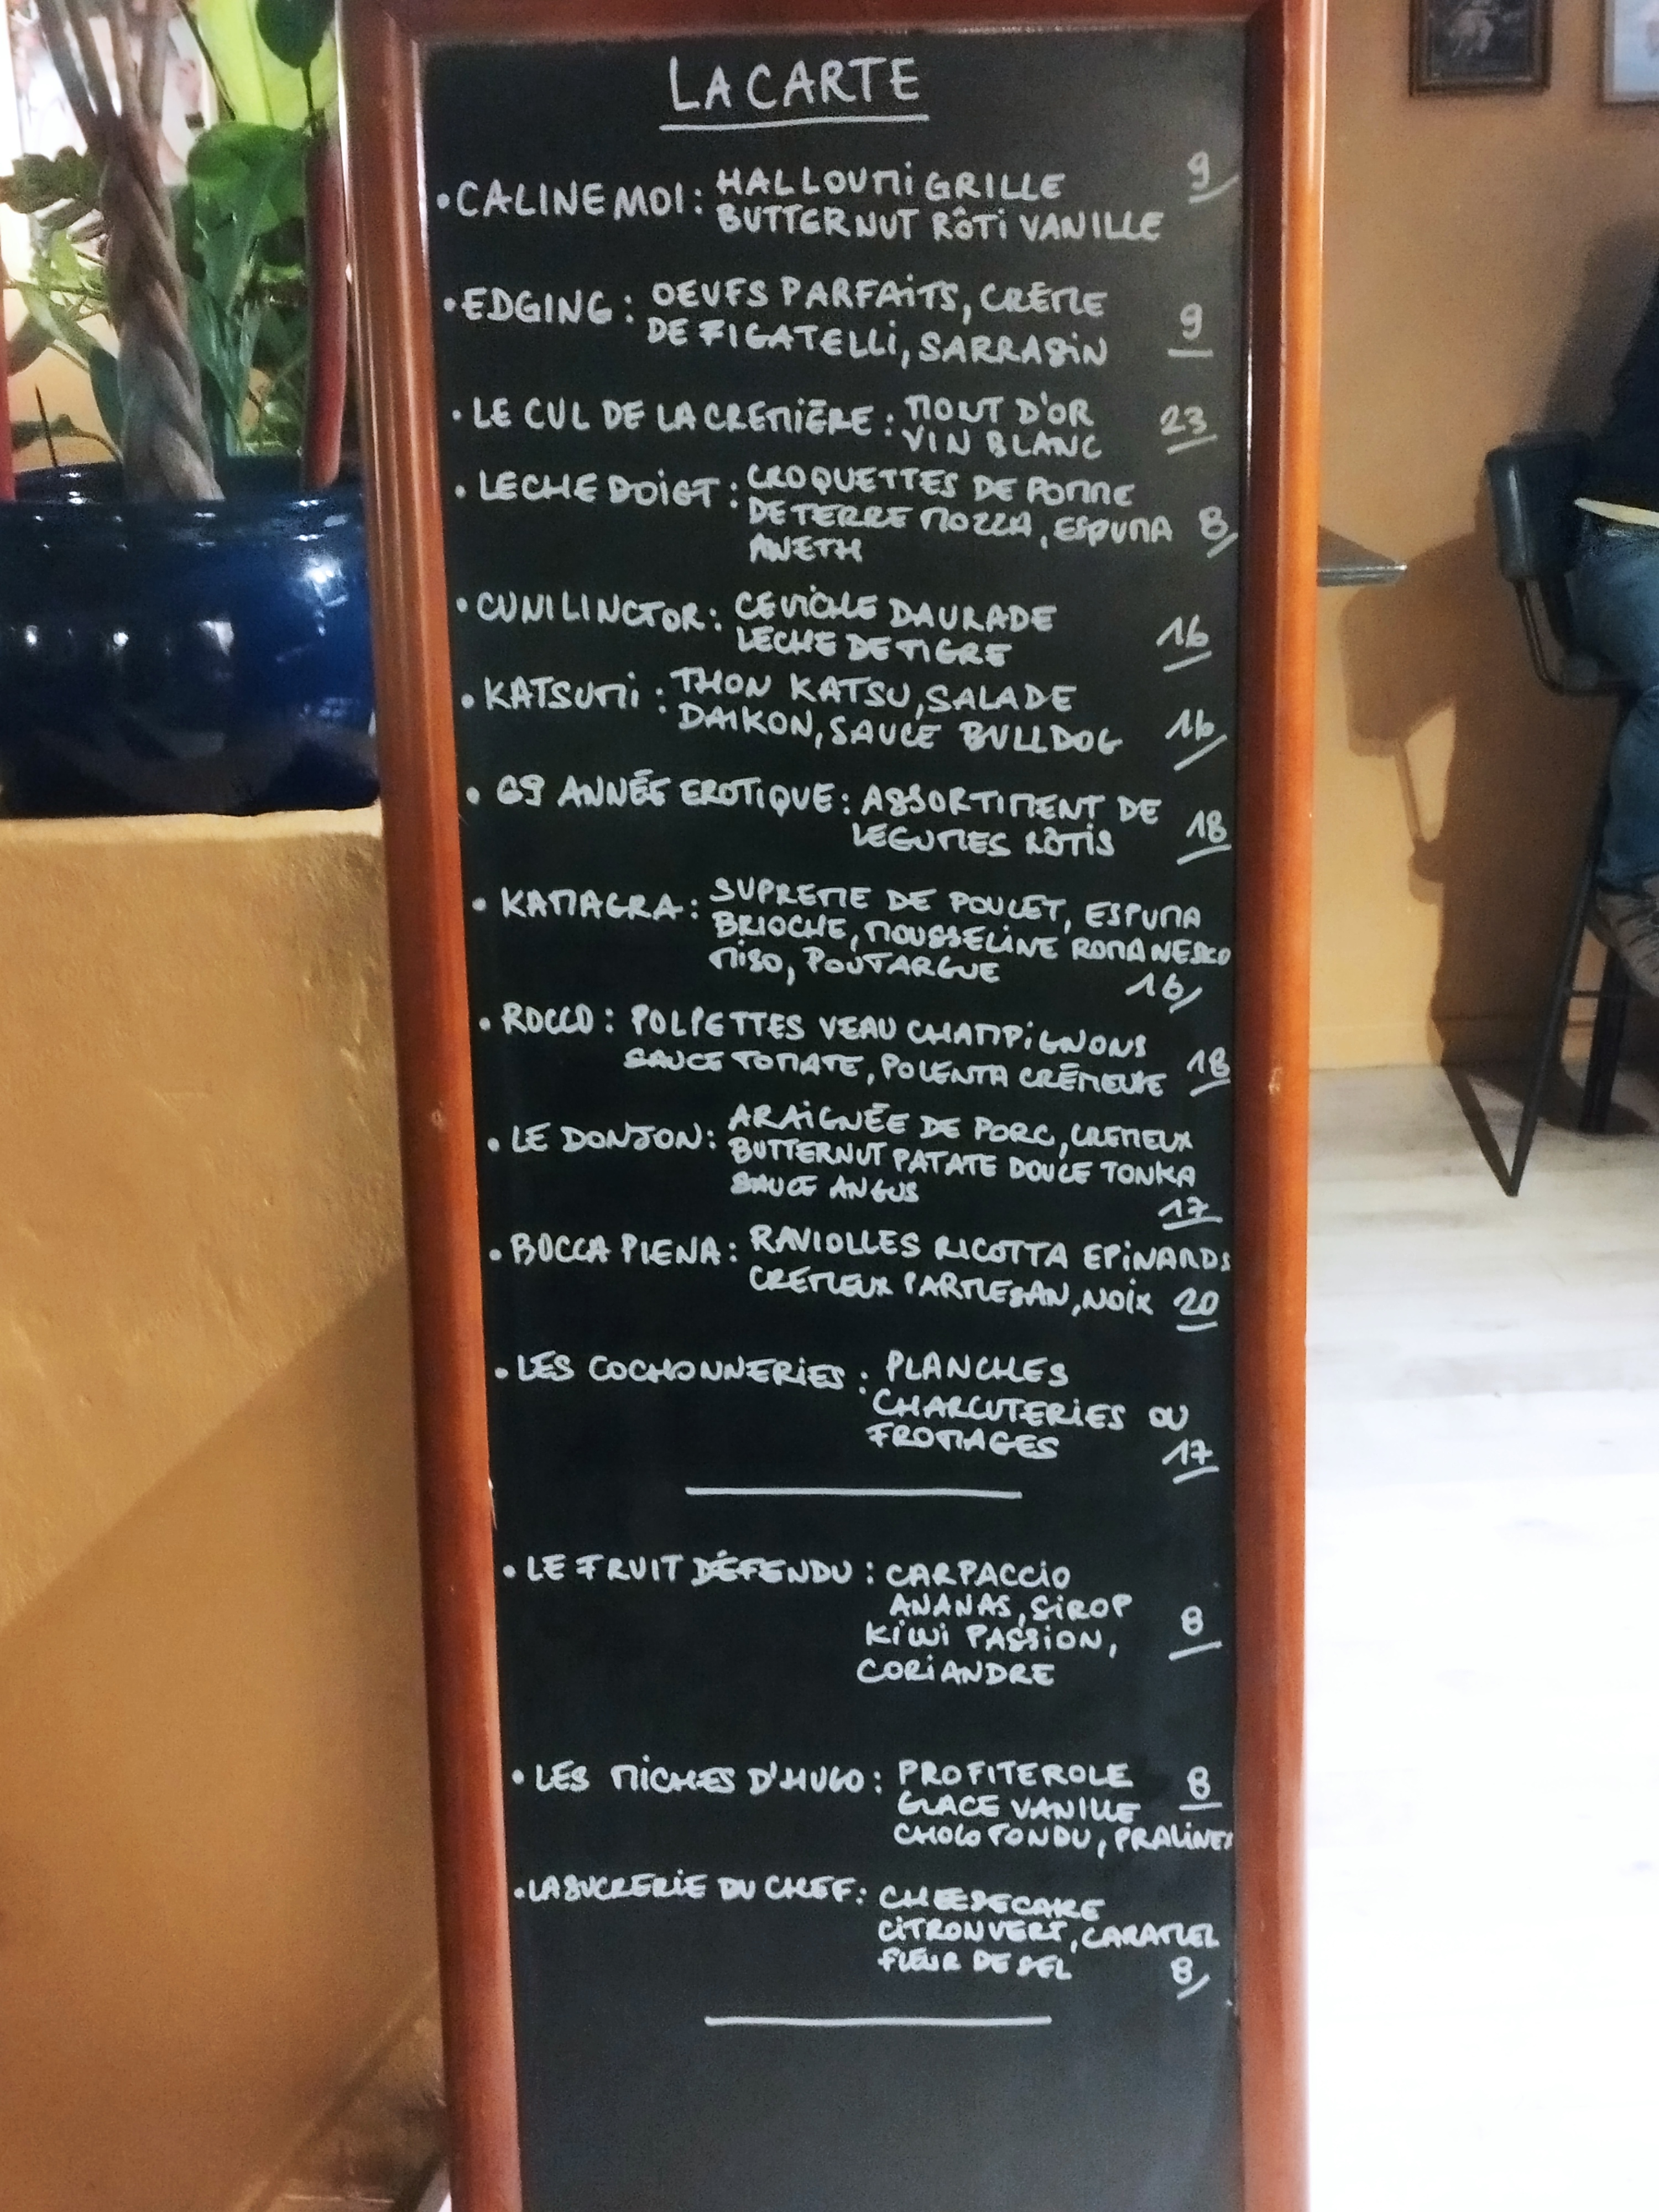 LA CARTE
• CALINE MOI : HALLOUMI GRILLE 9
BUTTERNUT RÔTI VANILLE
• EDGING : OEUFS PARFAITS, CRÈME
DE FIGATELLI, SARRASIN 9
• LE CUL DE LA CREMIÈRE : MONT D'OR 23
VIN BLANC
• LECHE DOIGT : CROQUETTES DE POMME
DE TERRE MOZZA, ESPUMA 8
ANETH
• CUNILINCTOR : CEVICHE DAURADE
LECHE DE TIGRE 16
• KATSUMI : THON KATSU, SALADE
DAIKON, SAUCE BULLDOG 16
• 69 ANNÉE EROTIQUE : ASSORTIMENT DE
LEGUMES RÔTIS 18
• KAMAGRA : SUPREME DE POULET, ESPUMA
BRIOCHE, MOUSSELINE ROMANESCO
MISO, POUTARGUE 16
• ROCCO : POLPETTES VEAU CHAMPIGNONS
SAUCE TOMATE, POLENTA CRÉMEUSE 18
• LE DONJON : ARAIGNÉE DE PORC, CREMEUX
BUTTERNUT PATATE DOUCE TONKA
SAUCE ANGUS
17
• BOCCA PIENA : RAVIOLLES RICOTTA EPINARDS
CREMEUX PARMESAN, NOIX 20
• LES COCHONNERIES : PLANCHES
CHARCUTERIES OU
FROMAGES 17
• LE FRUIT DÉFENDU : CARPACCIO
ANANAS, SIROP
KIWI PASSION, 8
CORIANDRE
• LES MICHES D'HUGO : PROFITEROLE 8
GLACE VANILLE
CHOCO FONDU, PRALINES
• LA SUCRERIE DU CHEF : CHEESECAKE
CITRON VERT, CARAMEL
FLEUR DE SEL 8